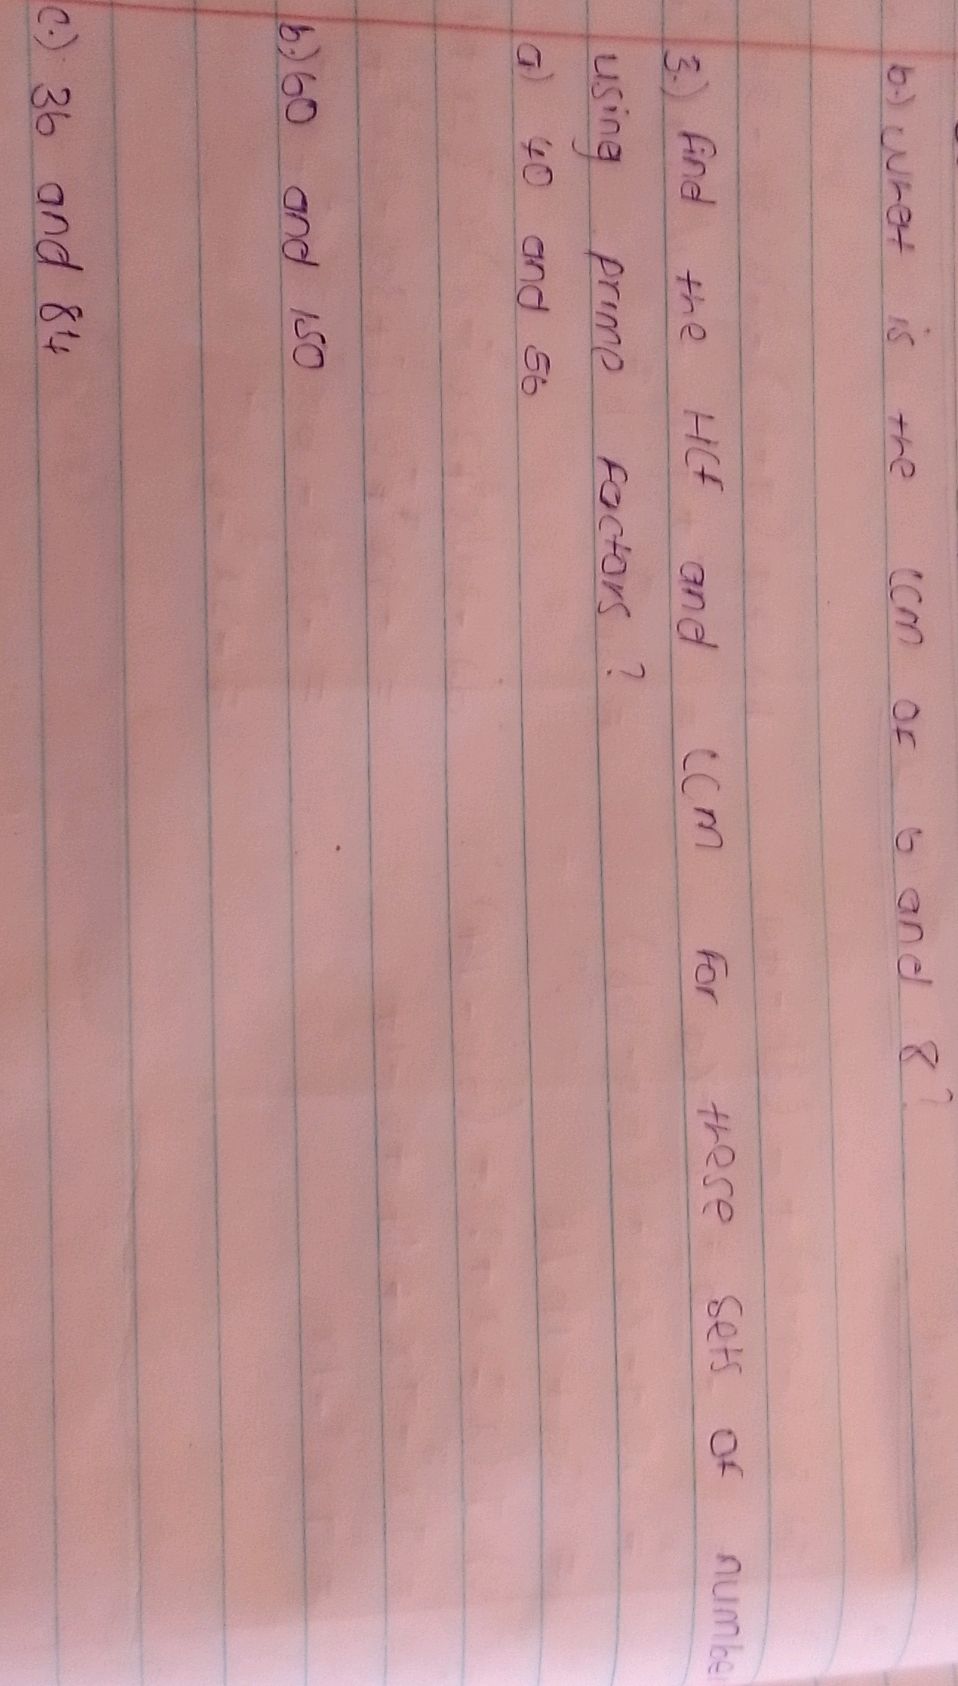 b.) What is the LCM OF 6 and 8?
3.) find the HCF and LCM For these sets of number
using prime factors?
a) 40 and 56
b.) 60 and 150
c.) 36 and 84